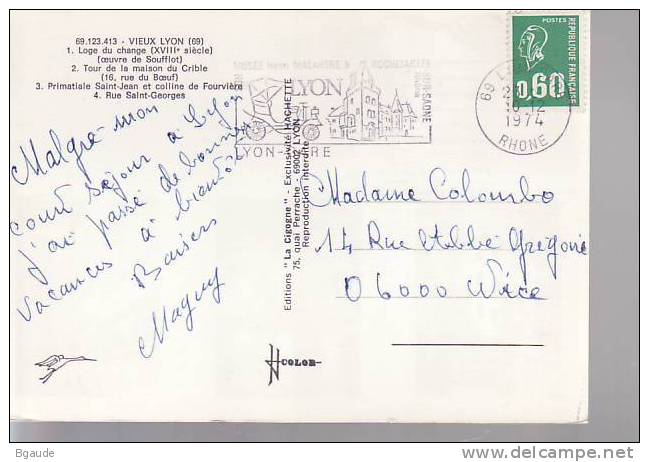 69.123.413 - VIEUX LYON (69)
1. Loge du change (XVIIIe siècle)
(œuvre de Soufflot)
2. Tour de la maison du Crible
(16, rue du Bœuf)
3. Primatiale Saint-Jean et colline de Fourvière
4. Rue Saint-Georges
Malgré mon
court séjour à Lyon
j'ai passé de bonnes
vacances à bientôt
Baisers
Maguy
Editions "La Cigogne" - Exclusivité HACHETTE
75, quai Perrache - 69002 LYON
Reproduction interdite
COLOR
MUSEE HENRI MALARTRE
LYON
SUR-SAONE
LYON-GARE
69 LYON
10-12
1974
RHONE
POSTES
REPUBLIQUE FRANÇAISE
0,60
Madame Colombo
14 Rue Abbé Grégoire
06000 Nice
Bgaude
delcampe.net